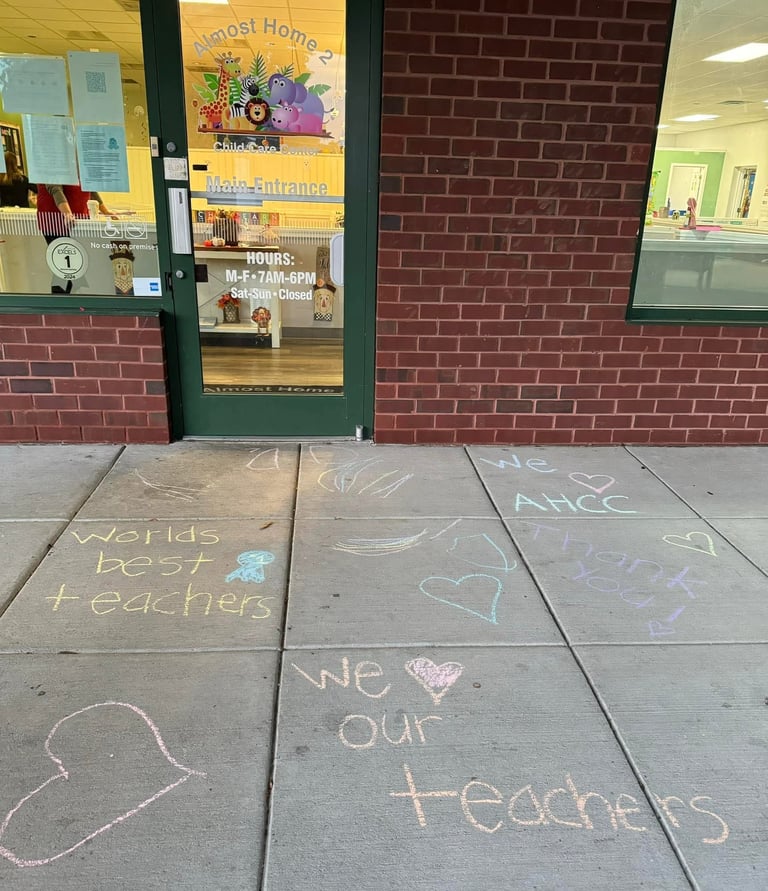 Almost Home 2
Child Care Center
Main Entrance
HOURS:
M-F•7AM-6PM
Sat-Sun•Closed
No cash on premises
EXCELS
1
Almost Home
We
AHCC
Worlds
best
teachers
Thank
you!
We
our
teachers